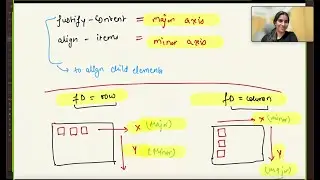 justify-content = major axis
align-items = minor axis
→ to align child elements
FD = row
FD = column
x (Major)
x (minor)
Y (Minor)
Y (Major)